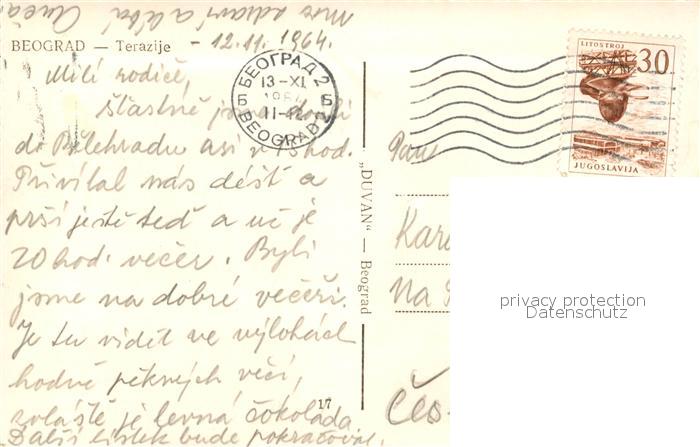 Moc zdraví a líbá
BEOGRAD — Terazije - 12.11.1964.
Milí rodiče,
šťastně jsme
do Bělehradu asi v 15 hod.
Přivítal nás déšť a
prší ještě teď a už je
20 hod. večer. Byli
jsme na dobré večeři.
Je tu vidět ve výlohách
hodně pěkných věcí,
zvláště je levná čokoláda
Další lístek bude pokračovat.
17
БЕОГРАД 2
13-XI
1964
11-12
BEOGRAD 2
„DUVAN" — Beograd
LITOSTROJ
30
JUGOSLAVIJA
Pan
Kar
Na
Čes
privacy protection
Datenschutz